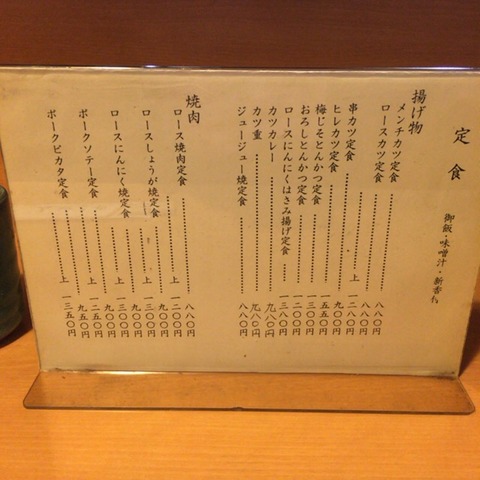 定食
御飯・味噌汁・新香付
揚げ物
メンチカツ定食 八八〇円
ロースカツ定食 八八〇円
上 一二八〇円
串カツ定食 九〇〇円
ヒレカツ定食 一三〇〇円
梅じそとんかつ定食
おろしとんかつ定食
ロースにんにくはさみ揚げ定食 一三八〇円
カツカレー 九八〇円
カツ重 九八〇円
ジュージュー焼定食 八八〇円
焼肉
ロース焼肉定食 八八〇円
上 一二〇〇円
ロースしょうが焼定食 九〇〇円
上 一三〇〇円
ロースにんにく焼定食 九〇〇円
上 一三〇〇円
ポークソテー定食 九〇〇円
上 一二五〇円
ポークピカタ定食 九五〇円
上 一三五〇円